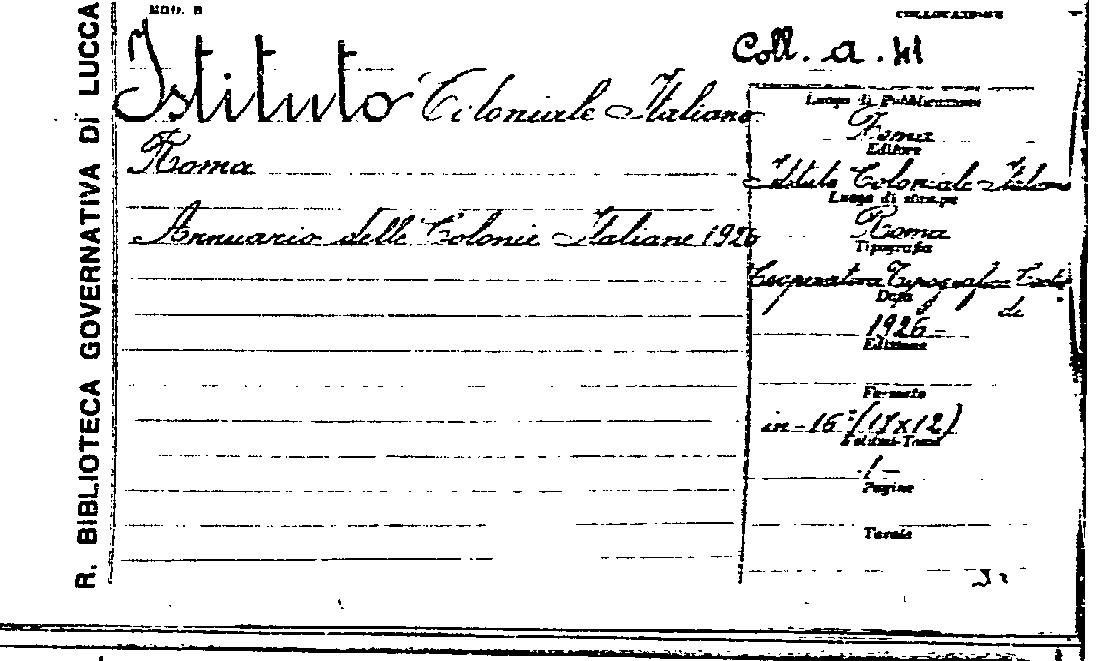 MOD. B
COLLOCAZIONE
R. BIBLIOTECA GOVERNATIVA DI LUCCA
Coll. a. 41
Istituto Coloniale Italiano
Roma
Annuario delle Colonie Italiane 1926
Luogo di Pubblicazione
Roma
Editore
Istituto Coloniale Italiano
Luogo di stampa
Roma
Tipografia
Cooperativa Tipografica
Data
1926-
Edizione
Formato
in-16°
Volumi-Tomi
1-
Pagine
Tavole